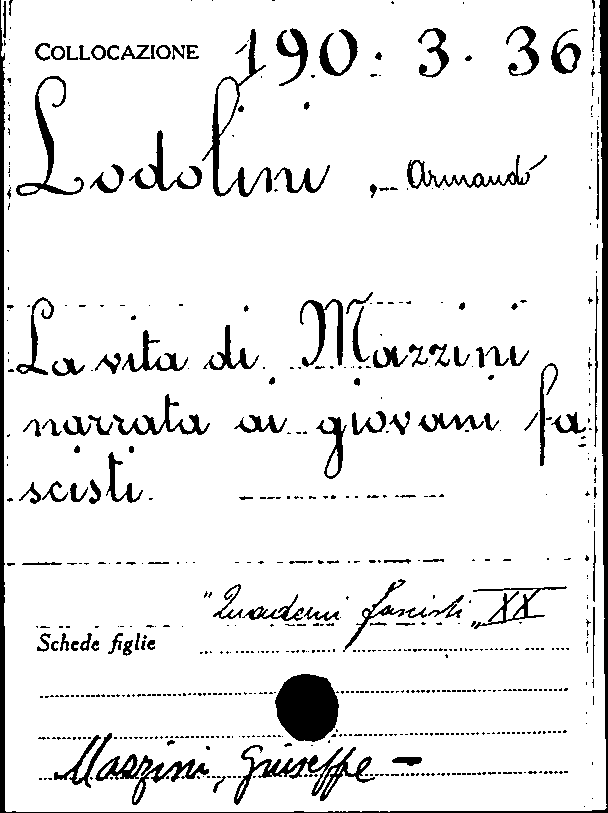 COLLOCAZIONE 190. 3. 36
Lodolini, Armando
La vita di Mazzini
narrata ai giovani fa
scisti.
"Quaderni fascisti„ XX
Schede figlie
Mazzini, Giuseppe -